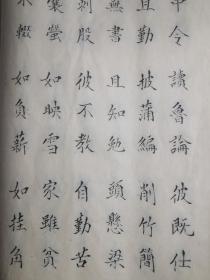 中令讀魯論彼既仕
且勤披蒲編削竹簡
無書且知勉頭懸梁
刺股彼不教自勤苦
囊螢如映雪家雖貧
輟如負薪如挂角